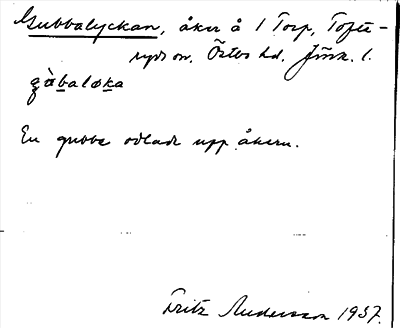 Gubbalyckan, åker å 1 Torp, Tofte-
ryds sn. Östbo hd. Jönk. l.
En gubbe odlade upp åkern.
Fritz Andersson 1937.